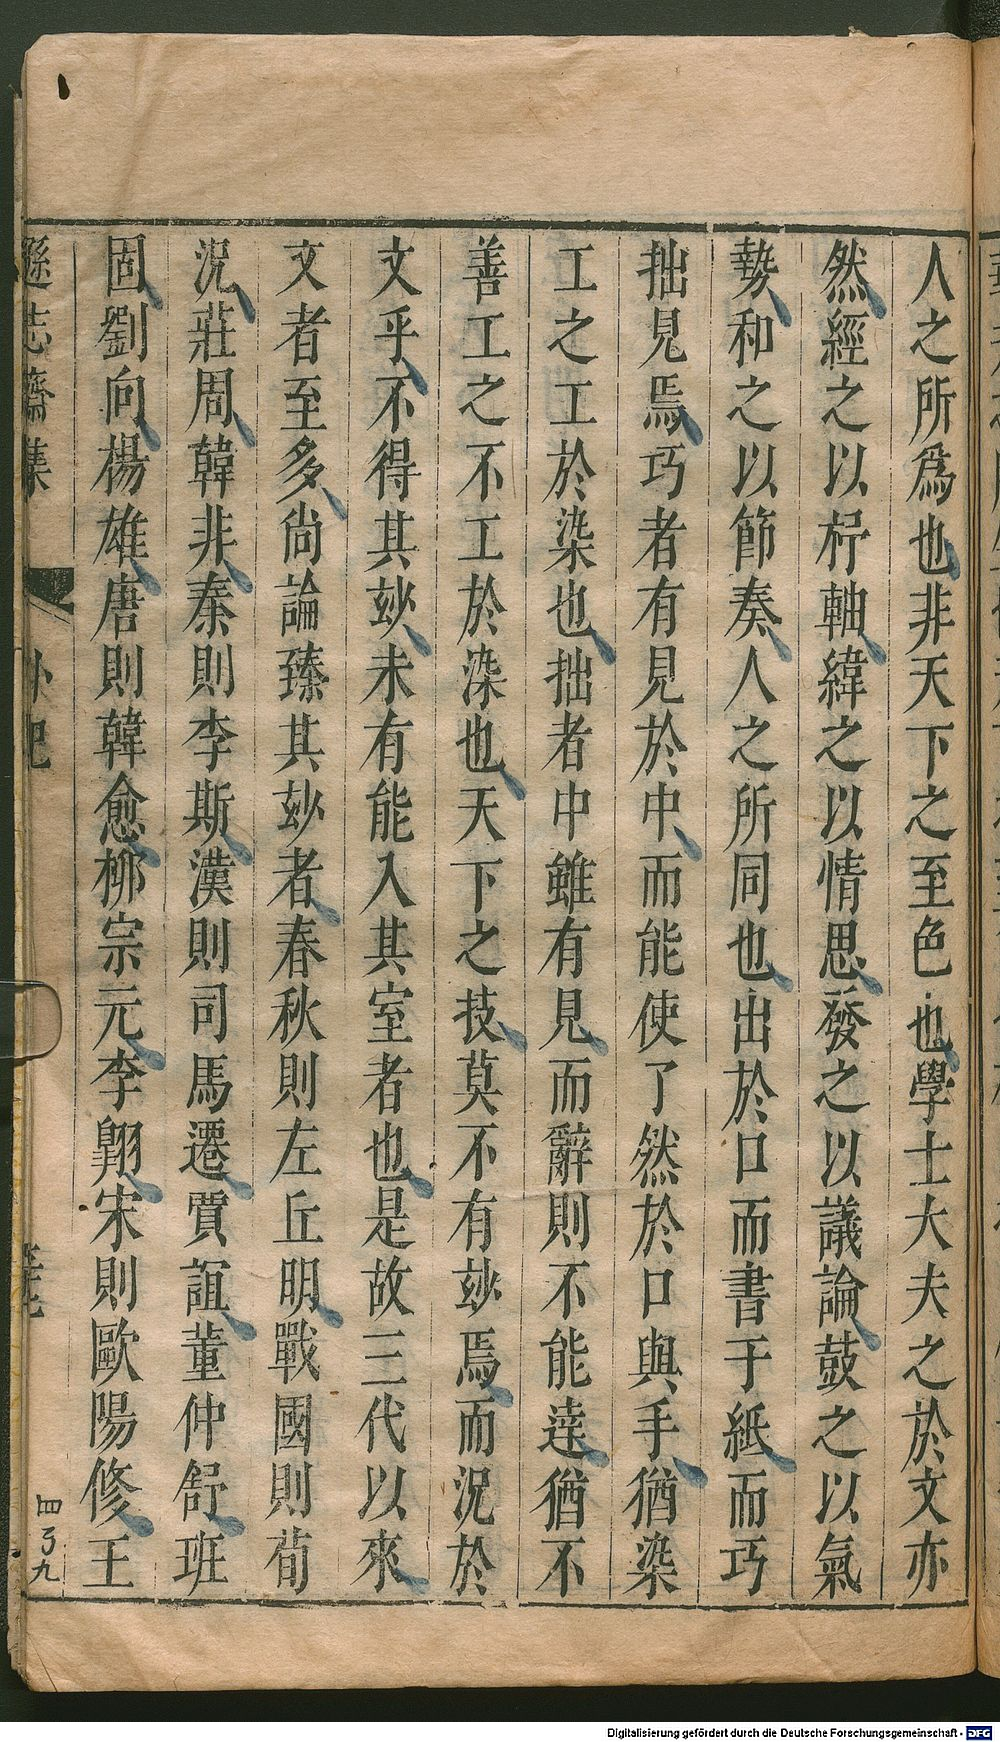 人之所爲也非天下之至色也學士大夫之於文亦
然經之以杼軸緯之以情思發之以議論鼓之以氣
勢和之以節奏人之所同也出於口而書于紙而巧
拙見焉巧者有見於中而能使了然於口與手猶染
工之工於染也拙者中雖有見而辭則不能達猶不
善工之不工於染也天下之技莫不有玅焉而況於
文乎不得其玅未有能入其室者也是故三代以來
文者至多尙論臻其玅者春秋則左丘明戰國則荀
況莊周韓非秦則李斯漢則司馬遷賈誼董仲舒班
固劉向楊雄唐則韓愈柳宗元李翺宋則歐陽修王
遜志齋集
四丂九
Digitalisierung gefördert durch die Deutsche Forschungsgemeinschaft - DFG